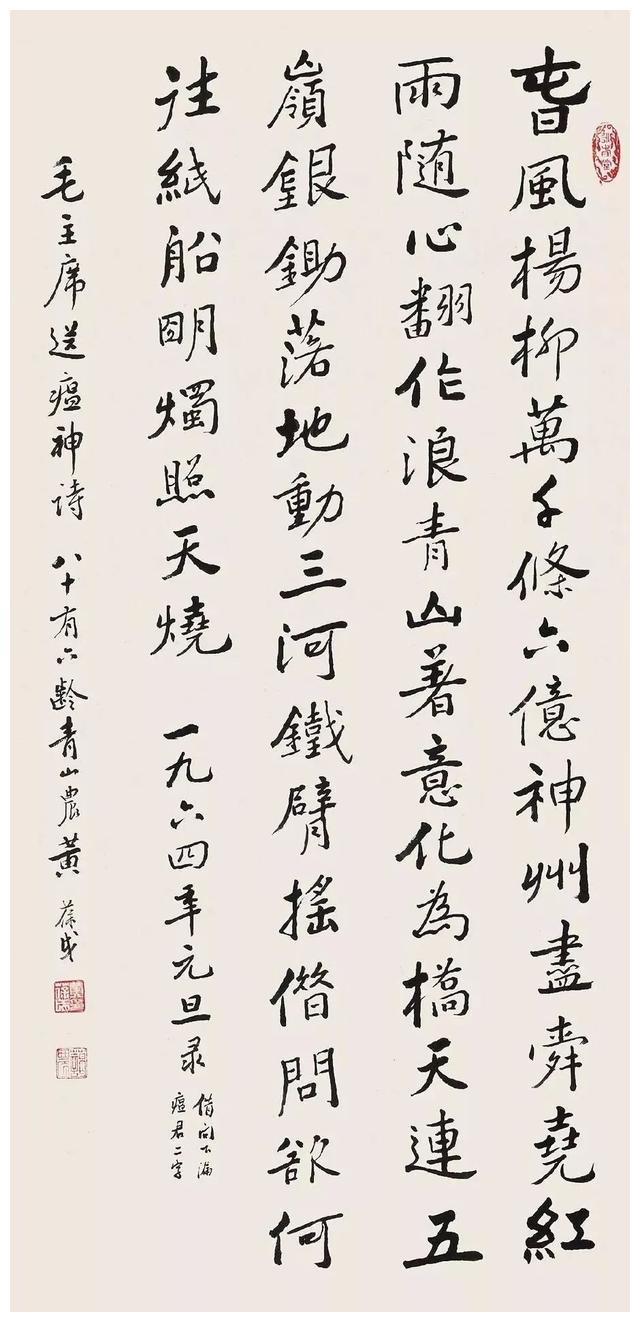 春風楊柳萬千條六億神州盡舜堯紅
雨随心翻作浪青山着意化為橋天連五
嶺銀鋤落地動三河鐵臂搖借問欲何
往紙船明燭照天燒　一九六四年元旦录
借问下漏
瘟君二字
毛主席送瘟神诗　八十有六齡青山農黃葆戉